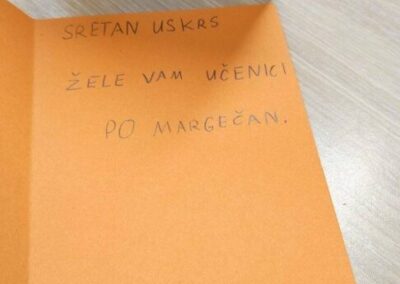 SRETAN USKRS
ŽELE VAM UČENICI
PO MARGEČAN.